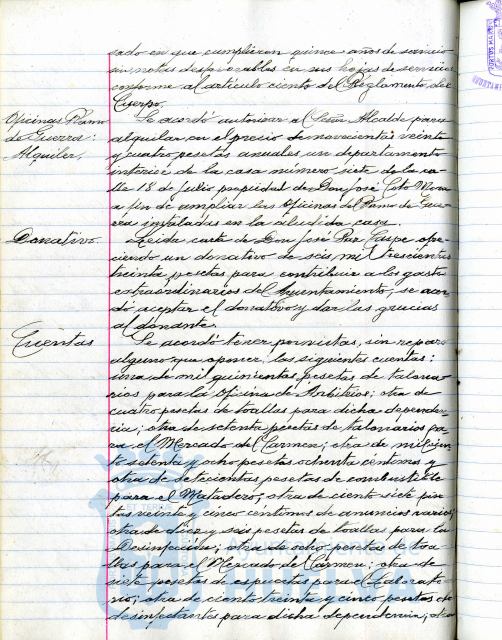 sado en que cumplieron quince años de servicio
sin notas desfavorables en sus hojas de servicios
conforme al artículo ciento del Reglamento del
Cuerpo.
Oficinas Ramo de Guerra: Alquiler.
Se acordó autorizar al Señor Alcalde para
alquilar en el precio de novecientas veinte
y cuatro pesetas anuales un departamento
interior de la casa número siete de la ca-
lle 18 de Julio propiedad de Don José Mora
a fin de ampliar las Oficinas del Ramo de Gue-
rra instaladas en la aludida casa.
Donativo.
Leida carta de Don José Paz ofre-
ciendo un donativo de seis mil trescientas
treinta pesetas para contribuir a los gastos
extraordinarios del Ayuntamiento, se acor-
dó aceptar el donativo y dar las gracias
al donante.
Cuentas
Se acordó tener por vistas, sin reparo
alguno que oponer, las siguientes cuentas:
una de mil quinientas pesetas de talona-
rios para la Oficina de Arbitrios; otra de
cuatro pesetas de toallas para dicha dependen-
cia; otra de setenta pesetas de talonarios pa-
ra el Mercado del Carmen; otra de mil cien-
to setenta y ocho pesetas ochenta céntimos y
otra de setecientas pesetas de combustible
para el Matadero; otra de ciento siete pese-
tas veinte y cinco céntimos de anuncios varios;
otra de diez y seis pesetas de toallas para la
Desinfección; otra de ocho pesetas de toa-
llas para el Mercado del Carmen; otra de
siete pesetas de espuertas para el Laborato-
rio; otra de ciento treinta y cinco pesetas de
desinfectantes para dicha dependencia; otra